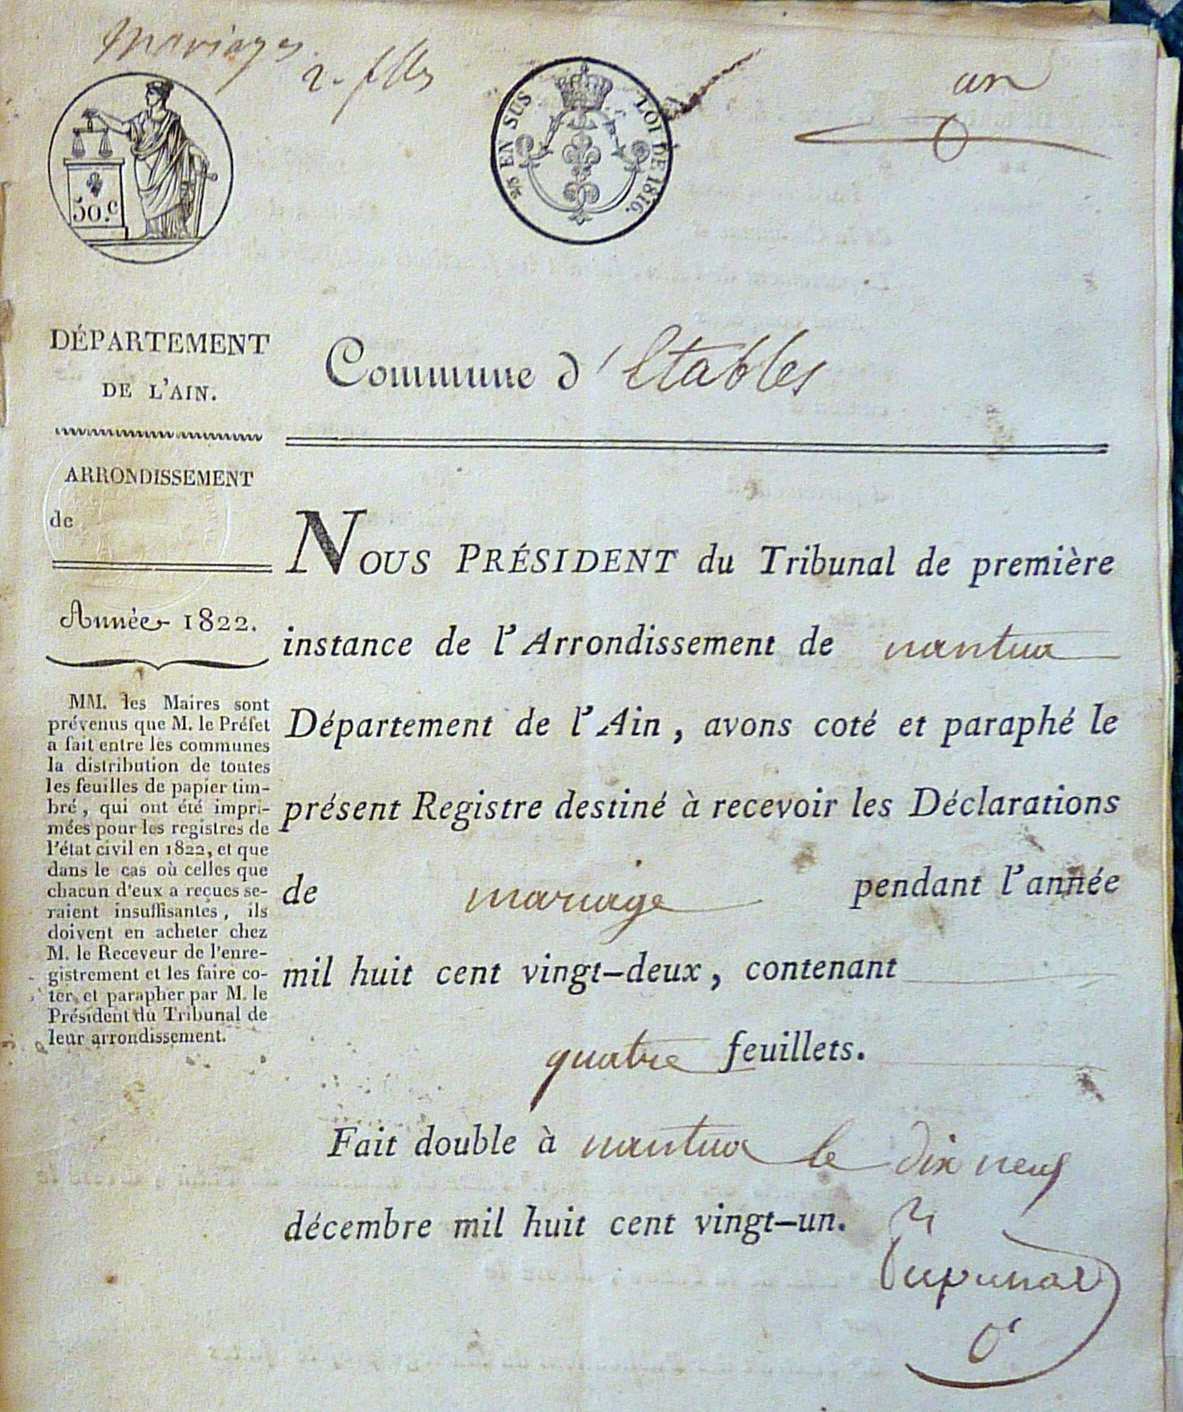 Mariages
2. flles
50.c
EN SUS LOI DE 1816.
un
DÉPARTEMENT
DE L'AIN.
ARRONDISSEMENT
de
Année 1822.
MM. les Maires sont
prévenus que M. le Préfet
a fait entre les communes
la distribution de toutes
les feuilles de papier tim-
bré, qui ont été impri-
mées pour les registres de
l'état civil en 1822, et que
dans le cas où celles que
chacun d'eux a reçues se-
raient insuffisantes, ils
doivent en acheter chez
M. le Receveur de l'enre-
gistrement et les faire co-
ter et parapher par M. le
Président du Tribunal de
leur arrondissement.
Commune d'Etables
NOUS PRÉSIDENT du Tribunal de première
instance de l'Arrondissement de nantua
Département de l'Ain, avons coté et paraphé le
présent Registre destiné à recevoir les Déclarations
de mariage pendant l'année
mil huit cent vingt-deux, contenant
quatre feuillets.
Fait double à nantua le dix neuf
décembre mil huit cent vingt-un.